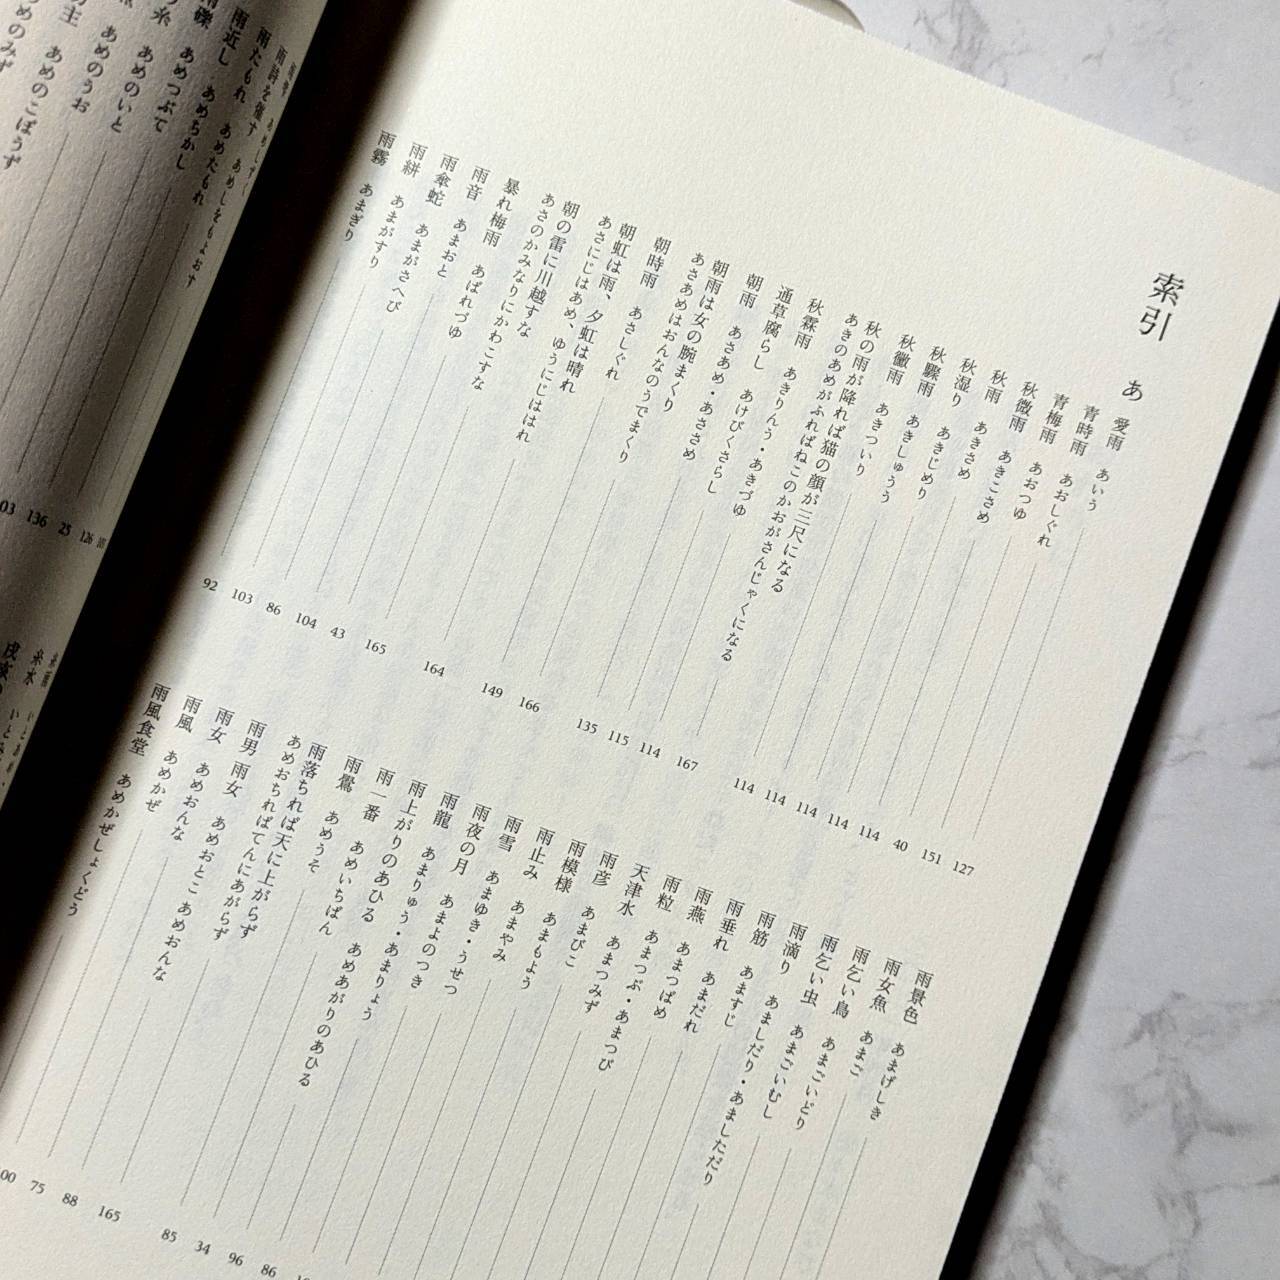 索引
あ
愛雨 あいう 127
青時雨 あおしぐれ 151
青梅雨 あおつゆ 40
秋微雨 あきこさめ 114
秋雨 あきさめ 114
秋湿り あきじめり 114
秋驟雨 あきしゅう 114
秋黴雨 あきついり 114
秋の雨が降れば猫の顔が三尺になる
あきのあめがふればねこのかおがさんじゃくになる 167
秋霖雨 あきりんう・あきづゆ 114
通草腐らし あけびくさらし 115
朝雨 あさあめ・あささめ 135
朝雨は女の腕まくり
あさあめはおんなのうでまくり 166
朝時雨 あさしぐれ 149
朝虹は雨、夕虹は晴れ
あさにじはあめ、ゆうにじははれ 164
朝の雷に川越すな
あさのかみなりにかわこすな 165
暴れ梅雨 あばれづゆ 43
雨音 あまおと 104
雨傘蛇 あまがさへび 86
雨絣 あまがすり 103
雨霧 あまぎり 92
雨景色 あまげしき
雨女魚 あまご
雨乞い鳥 あまごいどり
雨乞い虫 あまごいむし
雨滴り あましだり・あましただり
雨筋 あますじ
雨垂れ あまだれ
雨燕 あまつばめ
雨粒 あまつぶ・あまつび
天津水 あまつみず
雨彦 あまびこ
雨模様 あまもよう
雨止み あまやみ
雨雪 あまゆき・うせつ
雨夜の月 あまよのつき
雨龍 あまりゅう・あまりょう
雨上がりのあひる あめあがりのあひる
雨一番 あめいちばん 86
雨鷽 あめうそ 96
雨落ちれば天に上がらず
あめおちればてんにあがらず 34
雨男 雨女 あめおとこ あめおんな 85
雨女 あめおんな 165
雨風 あめかぜ 88
雨風食堂 あめかぜしょくどう 75
雨詩を催す あめしをもよおす
雨たもれ あめたもれ 126
雨近し あめちかし 25
あめつぶて 136
あめのいと
あめのうお
あめのこぼうず
あめのみず
糸水